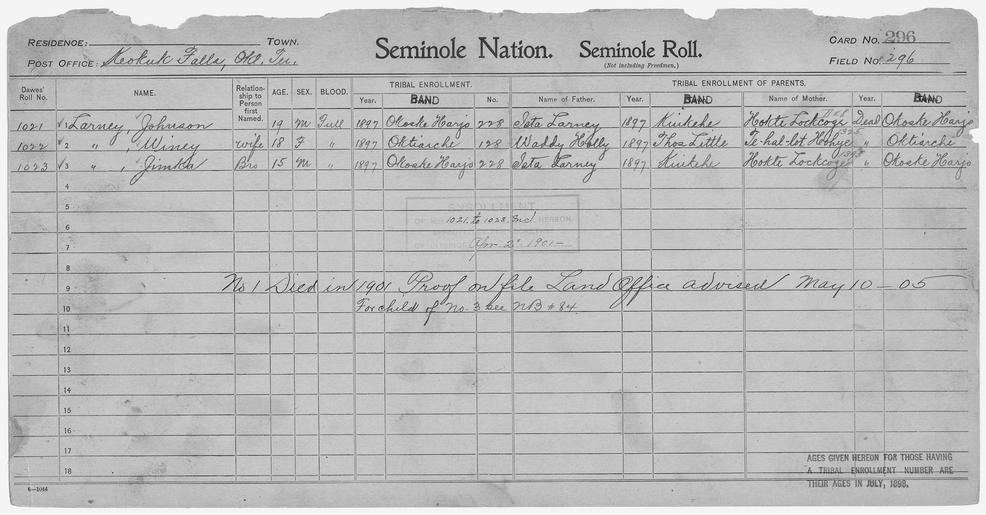 RESIDENCE: TOWN. Seminole Nation. Seminole Roll. CARD No. 296
POST OFFICE: Keokuk Falls, Okl. Ter. (Not including Freedmen.) FIELD No. 296
Dawes' Roll No. NAME. Relationship to Person first Named. AGE. SEX. BLOOD. TRIBAL ENROLLMENT. TRIBAL ENROLLMENT OF PARENTS.
Year. BAND No. Name of Father. Year. BAND Name of Mother. Year. BAND
1021 1 Larney, Johnson 19 M Full 1897 Okoske Harjo 228 Seta Larney 1897 Kinkehe Hokte Lockcoge Dead Okoske Harjo
1022 2 " , Winey wife 18 F " 1897 Oktiarche 128 Waddy Holly 1897 Thos Little Te-hal-lot Hohye " Oktiarche
1023 3 " , Jimka Bro 15 M " 1897 Okoske Harjo 228 Seta Larney 1897 Kinkehe Hokte Lockcoge " Okoske Harjo
4
5
ENROLLMENT
6 1021 to 1023 Incl. HEREON
7 Apr 2" 1901
8
9 No 1 Died in 1901 Proof on file Land Office advised May 10 - 05
10 For child of No. 3 see NB # 84
11
12
13
14
15
16
17
18
AGES GIVEN HEREON FOR THOSE HAVING
A TRIBAL ENROLLMENT NUMBER ARE
THEIR AGES IN JULY, 1898.
6—1044